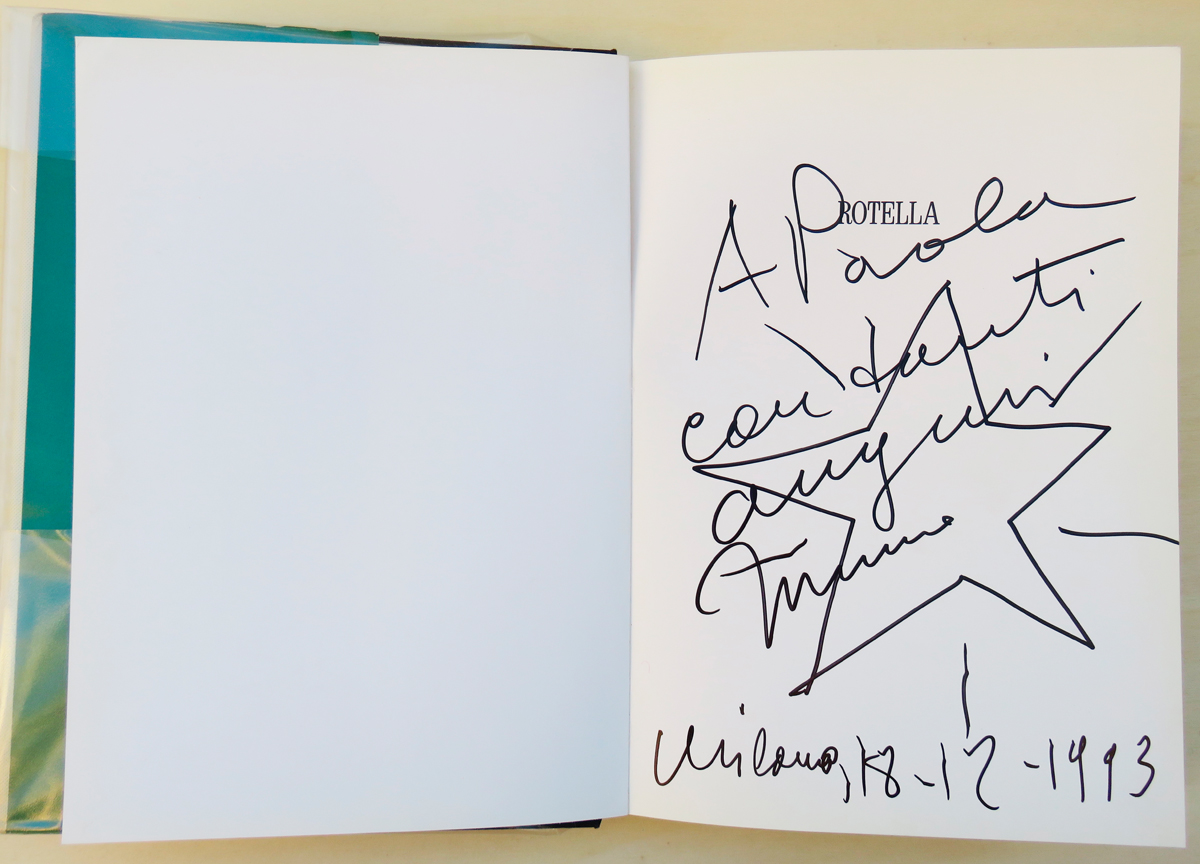 ROTELLA
A Paola
con tanti
auguri
Mimmo
Milano, 18-12-1993